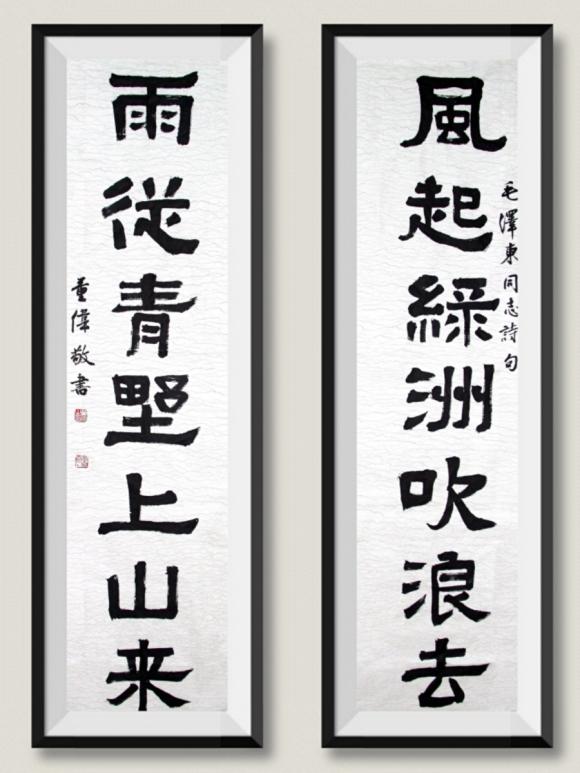 風起綠洲吹浪去
毛澤東同志詩句
雨從青墅上山来
董偉敬書